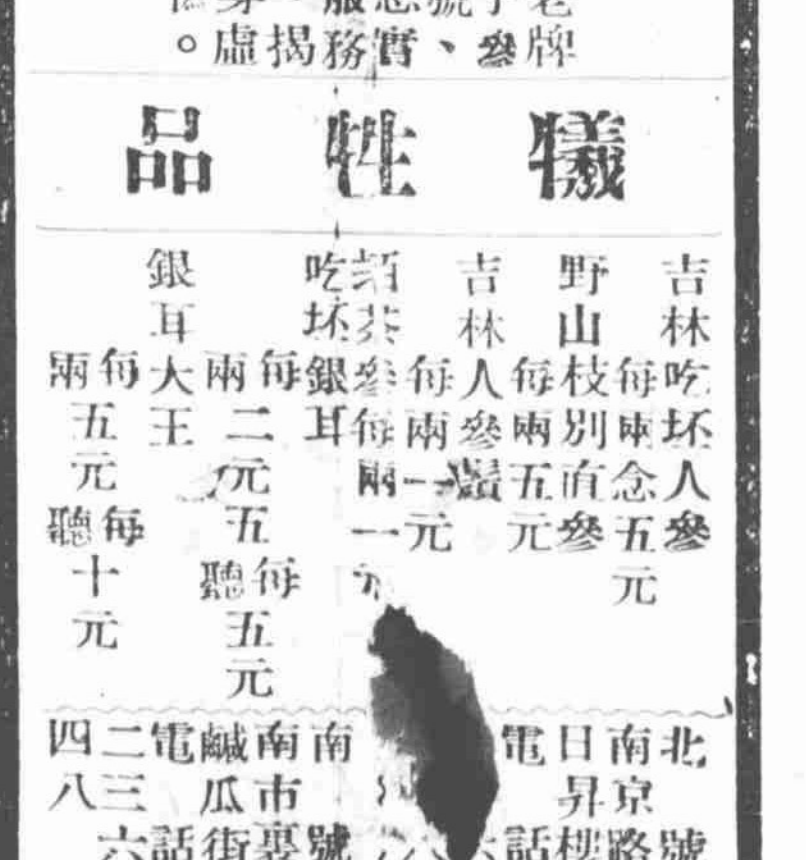 老牌
參、
實
服務
揭
虛。
犧牲品
吉林吃坯人參
每兩念五元
野山枝別直參
每兩五元
吉林人參鬚
每兩一元
參每兩一元
吃坯銀耳
每兩二元五
每聽五元
銀耳大王
每兩五元
每聽十元
北號
南京路
日昇樓
電話
南號
南市裏
鹹瓜街
電話
二三六
四八